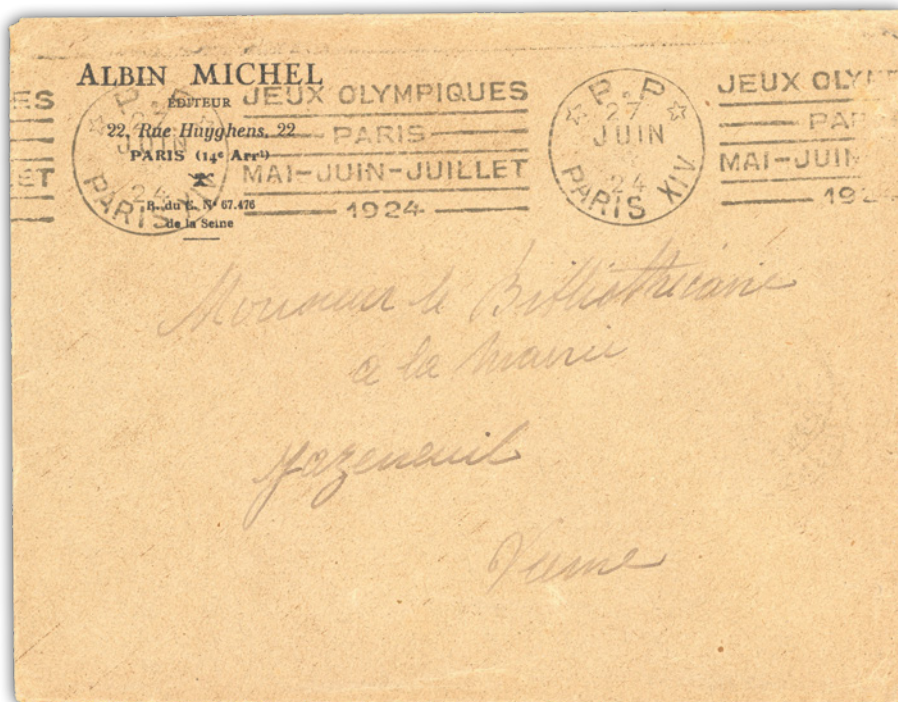 ALBIN MICHEL
ÉDITEUR
22, Rue Huyghens, 22
PARIS (14e Arrt)
R. du C. No 67.476
de la Seine
ES
ET
P.P
27
JUIN
24
PARIS XIV
JEUX OLYMPIQUES
PARIS
MAI-JUIN-JUILLET
1924
P.P
27
JUIN
24
PARIS XIV
JEUX OLYMP
PAR
MAI-JUIN
1924
Monsieur le Bibliothécaire
à la Mairie
Jazeneuil
Vienne